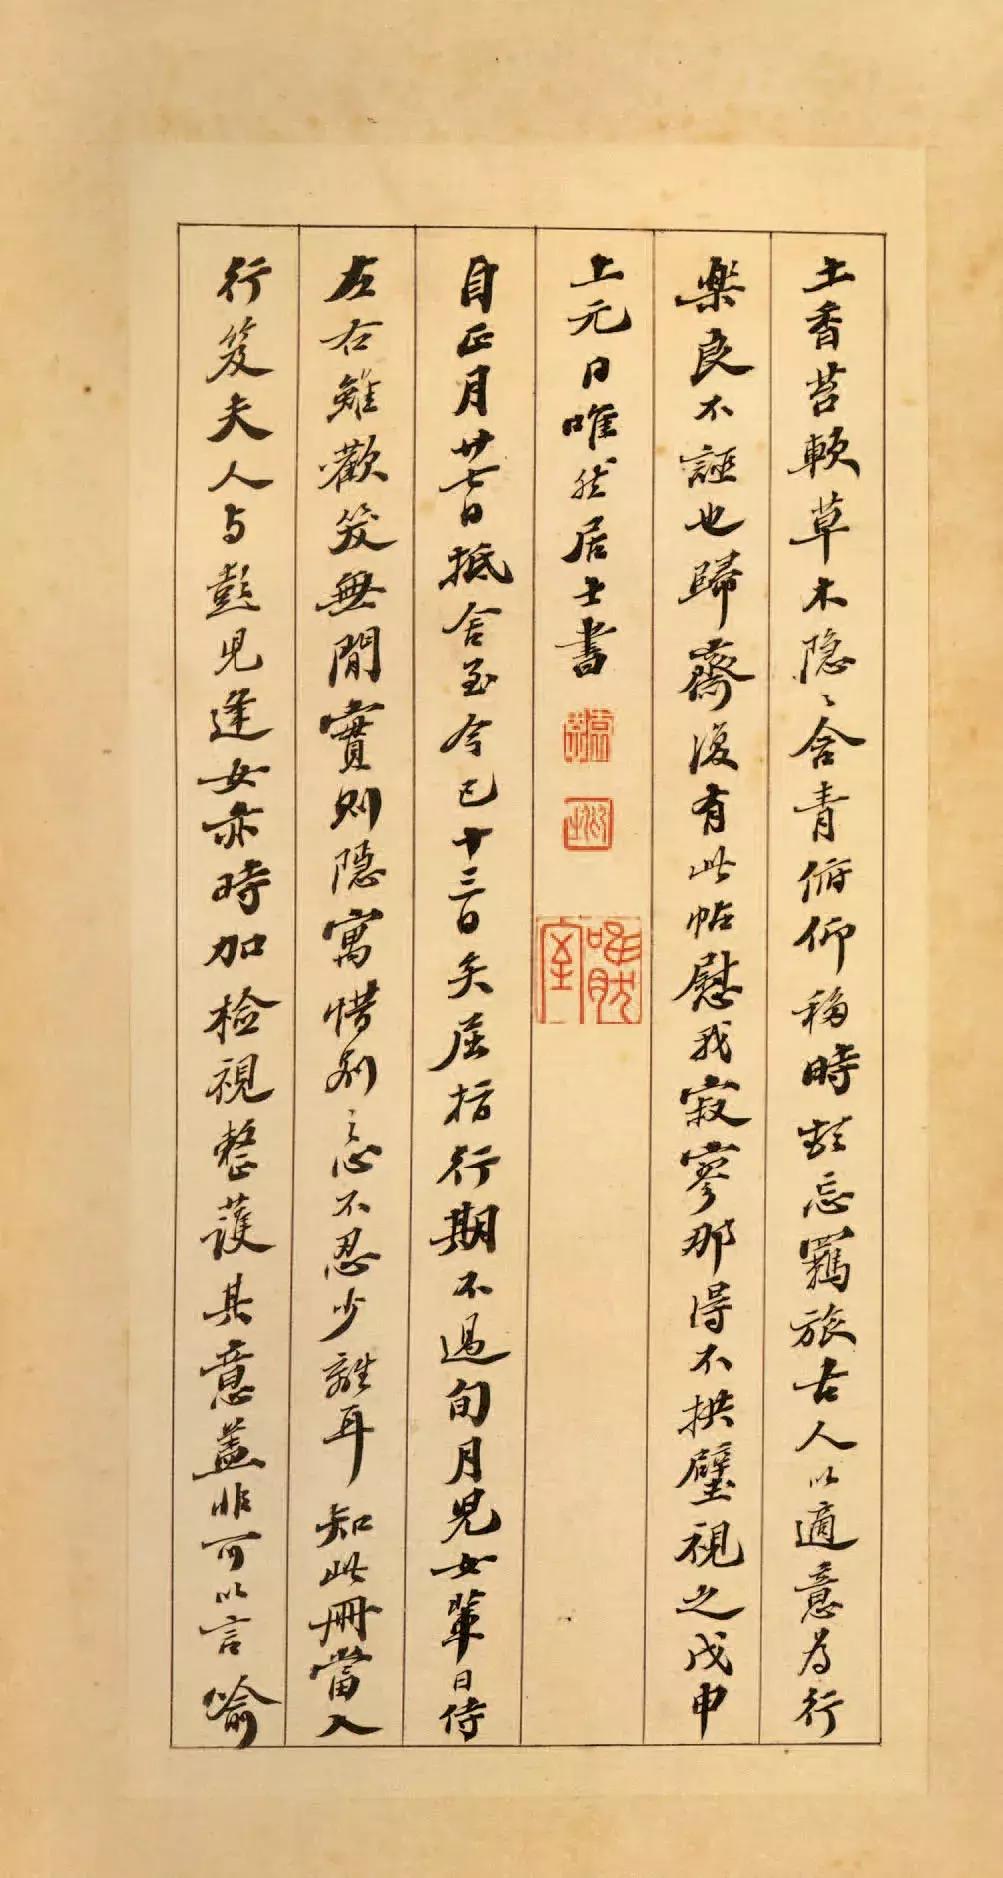 土香苔軟草木隐〻含青俯仰移時頓忘羈旅古人以適意為行
樂良不誣也歸齋後有此帖慰我寂寥那得不拱璧視之戊申
上元日唯然居士書
唯然室
自正月廿七日抵舍至今已十三日矣屈指行期不過旬月兒女輩日侍
左右雖歡笑無閒實則隱寓惜別之心不忍少離耳知此冊當入
行笈夫人与彭兒逢女亦時加檢視整護其意蓋非可以言喻